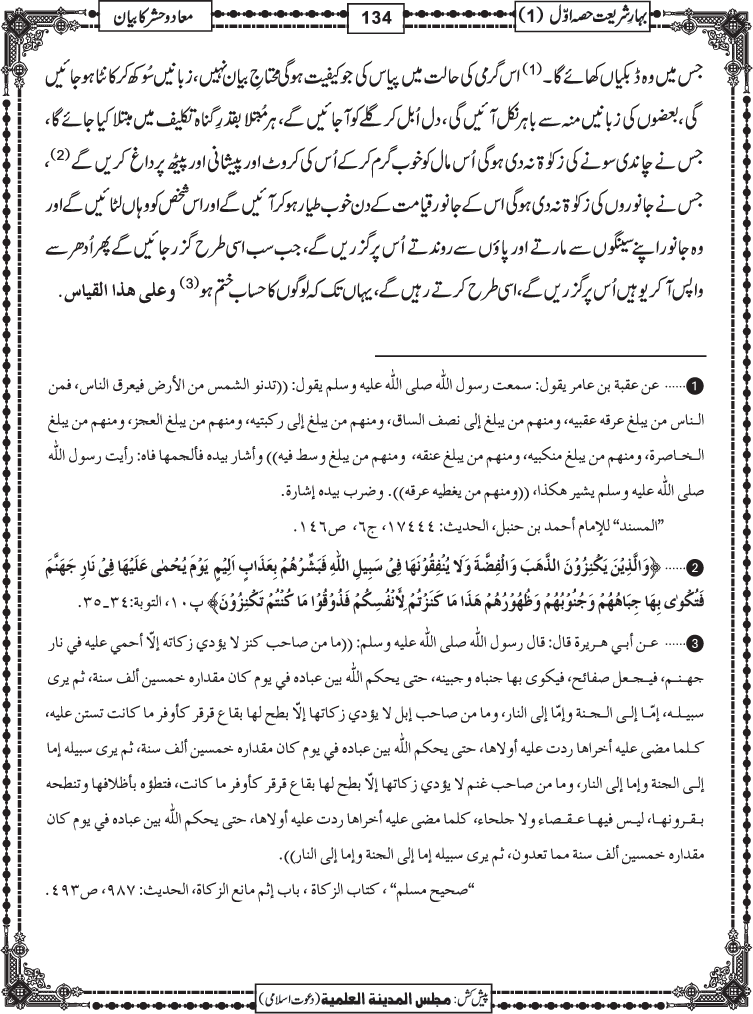 بہارِ شریعت حصہ اوّل (1)
134
معاد و حشر کا بیان
جس میں وہ ڈبکیاں کھائے گا۔(1) اس گرمی کی حالت میں پیاس کی جو کیفیت ہوگی محتاجِ بیان نہیں، زبانیں سُوکھ کر کانٹا ہو جائیں
گی، بعضوں کی زبانیں منہ سے باہر نکل آئیں گی، دل اُبل کر گلے کو آجائیں گے، ہر مُبتلا بقدرِ گناہ تکلیف میں مبتلا کیا جائے گا،
جس نے چاندی سونے کی زکوٰۃ نہ دی ہوگی اُس مال کو خوب گرم کرکے اُس کی کروٹ اور پیشانی اور پیٹھ پر داغ کریں گے(2)،
جس نے جانوروں کی زکوٰۃ نہ دی ہوگی اس کے جانور قیامت کے دن خوب طیار ہو کر آئیں گے اور اس شخص کو وہاں لٹائیں گے اور
وہ جانور اپنے سینگوں سے مارتے اور پاؤں سے روندتے اُس پر گزریں گے، جب سب اسی طرح گزر جائیں گے پھر اُدھر سے
واپس آکر یوہیں اُس پر گزریں گے، اسی طرح کرتے رہیں گے، یہاں تک کہ لوگوں کا حساب ختم ہو(3) وعلی ھذا القیاس.
1...... عن عقبة بن عامر يقول: سمعت رسول اللّٰه صلى اللّٰه عليه وسلم يقول: ((تدنو الشمس من الأرض فيعرق الناس، فمن
الناس من يبلغ عرقه عقبيه، ومنهم من يبلغ إلى نصف الساق، ومنهم من يبلغ إلى ركبتيه، ومنهم من يبلغ العجز، ومنهم من يبلغ
الخاصرة، ومنهم من يبلغ منكبيه، ومنهم من يبلغ عنقه، ومنهم من يبلغ وسط فيه)) وأشار بيده فألجمها فاه: رأيت رسول اللّٰه
صلى اللّٰه عليه وسلم يشير هكذا، ((ومنهم من يغطيه عرقه)). وضرب بيده إشارة.
”المسند“ للإمام أحمد بن حنبل، الحديث: ١٧٤٤٤، ج٦، ص١٤٦.
2...... ﴿وَالَّذِيْنَ يَكْنِزُوْنَ الذَّهَبَ وَالْفِضَّةَ وَلَا يُنْفِقُوْنَهَا فِىْ سَبِيْلِ اللّٰهِ فَبَشِّرْهُمْ بِعَذَابٍ اَلِيْمٍ يَوْمَ يُحْمٰى عَلَيْهَا فِىْ نَارِ جَهَنَّمَ
فَتُكْوٰى بِهَا جِبَاهُهُمْ وَجُنُوْبُهُمْ وَظُهُوْرُهُمْ هَذَا مَا كَنَزْتُمْ لِأَنْفُسِكُمْ فَذُوْقُوْا مَا كُنْتُمْ تَكْنِزُوْنَ﴾ پ١٠، التوبة: ٣٤ـ٣٥.
3...... عن أبي هريرة قال: قال رسول اللّٰه صلى اللّٰه عليه وسلم: ((ما من صاحب كنز لا يؤدي زكاته إلّا أحمي عليه في نار
جهنم، فيجعل صفائح، فيكوى بها جنباه وجبينه، حتى يحكم اللّٰه بين عباده في يوم كان مقداره خمسين ألف سنة، ثم يرى
سبيله، إمّا إلى الجنة وإمّا إلى النار، وما من صاحب إبل لا يؤدي زكاتها إلّا بطح لها بقاع قرقر كأوفر ما كانت تستن عليه،
كلما مضى عليه أخراها ردت عليه أولاها، حتى يحكم اللّٰه بين عباده في يوم كان مقداره خمسين ألف سنة، ثم يرى سبيله إما
إلى الجنة وإما إلى النار، وما من صاحب غنم لا يؤدي زكاتها إلّا بطح لها بقاع قرقر كأوفر ما كانت، فتطؤه بأظلافها وتنطحه
بقرونها، ليس فيها عقصاء ولا جلحاء، كلما مضى عليه أخراها ردت عليه أولاها، حتى يحكم اللّٰه بين عباده في يوم كان
مقداره خمسين ألف سنة مما تعدون، ثم يرى سبيله إما إلى الجنة وإما إلى النار)).
”صحيح مسلم“، كتاب الزكاة، باب إثم مانع الزكاة، الحديث: ٩٨٧، ص٤٩٣.
پیش کش: مجلس المدینة العلمیة (دعوت اسلامی)